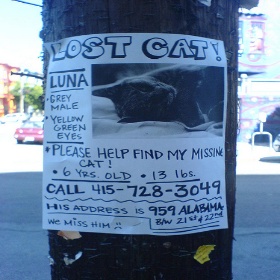 LOST CAT!
LUNA
• GREY
MALE
• YELLOW
GREEN
EYES
• PLEASE HELP FIND MY MISSING
CAT!
• 6 YRS. OLD • 13 lbs.
CALL 415-728-3049
HIS ADDRESS IS 959 ALABAMA
WE MISS HIM :( B/W 21st & 22nd